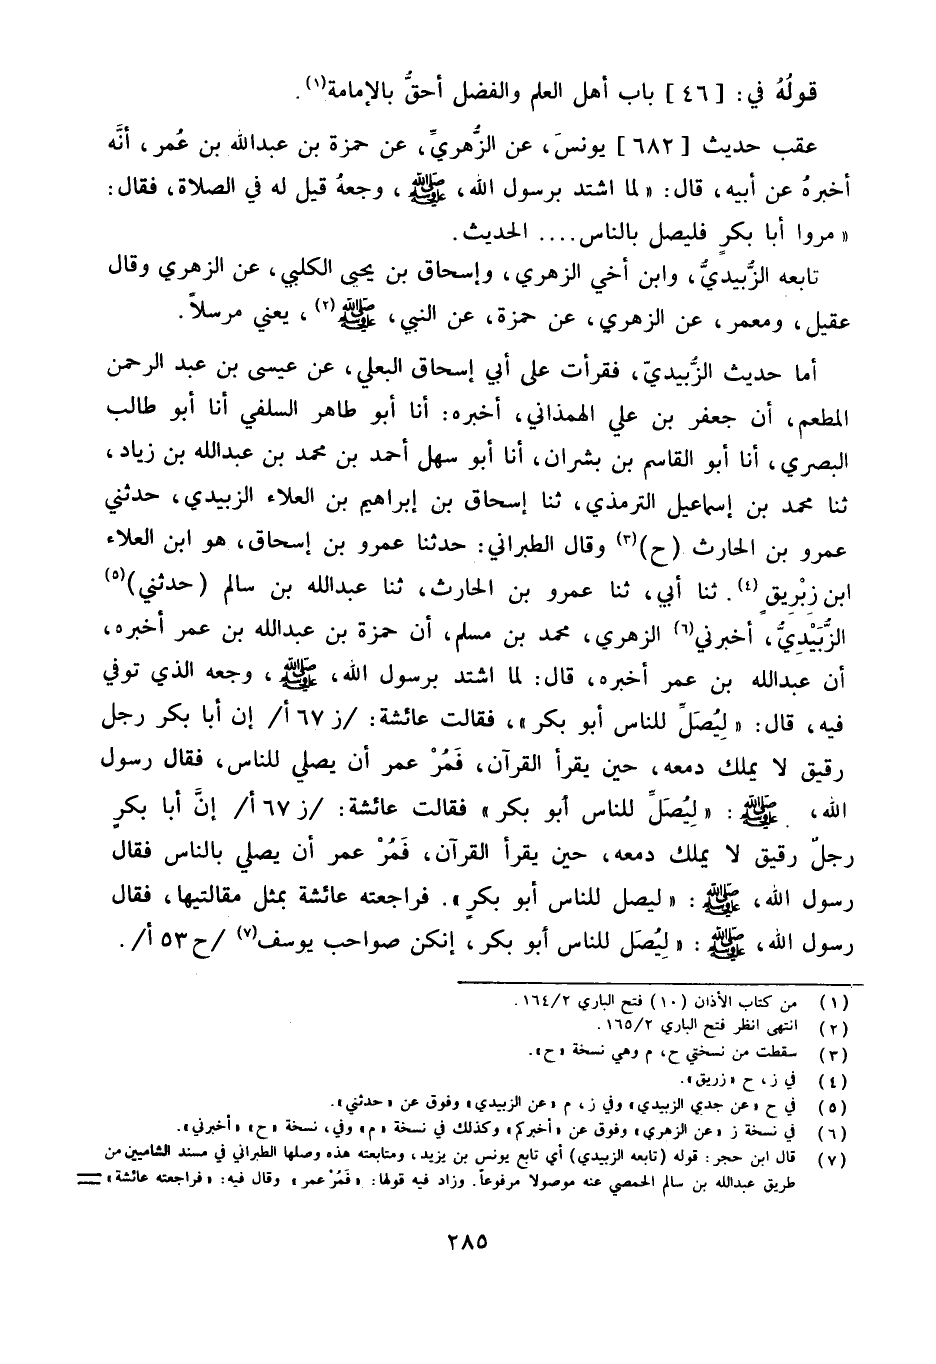 قولُهُ في: [ ٤٦ ] باب أهل العلم والفضل أحقُّ بالإمامة(١).
عقب حديث [ ٦٨٢ ] يونسَ، عن الزُّهريِّ، عن حمزة بن عبدالله بن عُمر، أنَّه
أخبرهُ عن أبيه، قال: « لما اشتد برسول الله، ﷺ، وجعهُ قيل له في الصلاة، فقال:
« مروا أبا بكرٍ فليصل بالناس.... الحديث.
تابعه الزُّبيديُّ، وابن أخي الزهري، وإسحاق بن يحيى الكلبي، عن الزهري وقال
عقيل، ومعمر، عن الزهري، عن حمزة، عن النبي، ﷺ(٢)، يعني مرسلاً.
أما حديث الزُّبيديّ، فقرأت على أبي إسحاق البعلي، عن عيسى بن عبد الرحمن
المطعم، أن جعفر بن علي الهمذاني، أخبره: أنا أبو طاهر السلفي أنا أبو طالب
البصري، أنا أبو القاسم بن بشران، أنا أبو سهل أحمد بن محمد بن عبدالله بن زياد،
ثنا محمد بن إسماعيل الترمذي، ثنا إسحاق بن إبراهيم بن العلاء الزبيدي، حدثني
عمرو بن الحارث (ح)(٣) وقال الطبراني: حدثنا عمرو بن إسحاق، هو ابن العلاء
ابن زِبْرِيقٍ(٤). ثنا أبي، ثنا عمرو بن الحارث، ثنا عبدالله بن سالم (حدثني)(٥)
الزُّبَيْدِيُّ، أخبرني(٦) الزهري، محمد بن مسلم، أن حمزة بن عبدالله بن عمر أخبره،
أن عبدالله بن عمر أخبره، قال: لما اشتد برسول الله، ﷺ، وجعه الذي توفي
فيه، قال: « لِيُصَلِّ للناس أبو بكر»، فقالت عائشة: /ز ٦٧ أ/ إن أبا بكر رجل
رقيق لا يملك دمعه، حين يقرأ القرآن، فَمُرْ عمر أن يصلي للناس، فقال رسول
الله، ﷺ: « لِيُصَلِّ للناس أبو بكر» فقالت عائشة: /ز ٦٧ أ/ إنَّ أبا بكرٍ
رجلٌ رقيق لا يملك دمعه، حين يقرأ القرآن، فَمُرْ عمر أن يصلي بالناس فقال
رسول الله، ﷺ: « ليصل للناس أبو بكرٍ». فراجعته عائشة بمثل مقالتيها، فقال
رسول الله، ﷺ: « لِيُصَل للناس أبو بكر، إنكن صواحب يوسف(٧) /ح ٥٣ أ/.
(١) من كتاب الأذان (١٠) فتح الباري ١٦٤/٢.
(٢) انتهى انظر فتح الباري ١٦٥/٢.
(٣) سقطت من نسختي ح، م وهي نسخة «ح».
(٤) في ز، ح «زريق».
(٥) في ح «عن جدي الزبيدي» وفي ز، م «عن الزبيدي» وفوق عن «حدثني».
(٦) في نسخة ز «عن الزهري» وفوق عن «أخبركم» وكذلك في نسخة «م» وفي، نسخة «ح» «أخبرني».
(٧) قال ابن حجر: قوله (تابعه الزبيدي) أي تابع يونس بن يزيد، ومتابعته هذه وصلها الطبراني في مسند الشاميين من
طريق عبدالله بن سالم الحمصي عنه موصولا مرفوعاً. وزاد فيه قولها: «فَمُرْ عمر» وقال فيه: «فراجعته عائشة» =
٢٨٥